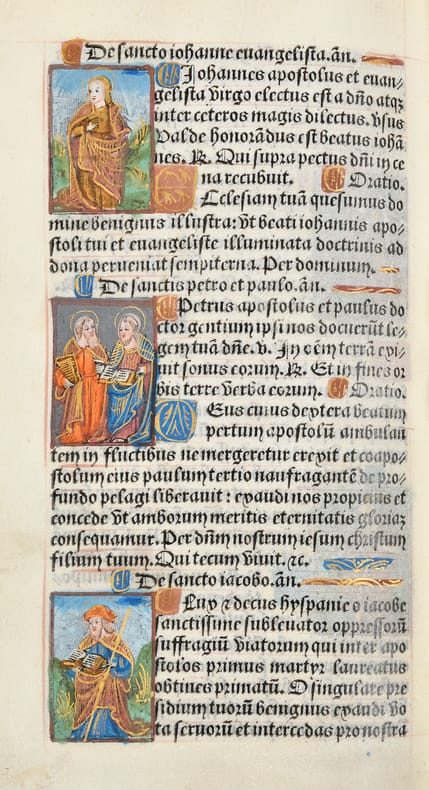 De sancto iohanne euangelista. añ.
Johannes apostolus et euan⸗
gelista virgo electus est a dño atqꝫ
inter ceteros magis dilectus. v̄sus
Valde honorãdus est beatus iohã
nes. ꝶ. Qui supra pectus dñi in ce
na recubuit. Oratio.
Ecclesiam tuã quesumus do
mine benignus illustra: vt beati iohannis apo⸗
stoli tui et euangeliste illuminata doctrinis ad
dona perueniat sempiterna. Per dominum.
De sanctis petro et paulo. añ.
Petrus apostolus et paulus do
ctor gentium ipsi nos docuerũt le⸗
gem tuã dñe. v. In oẽm terrã exi⸗
uit sonus eorum. ꝶ. Et in fines or
bis terre verba eorum. Oratio.
Deus cuius dextera beatum
petrum apostolũ ambulan
tem in fluctibus ne mergeretur erexit et coapo⸗
stolum eius paulum tertio naufragantẽ de pro⸗
fundo pelagi liberauit: exaudi nos propicius et
concede vt amborum meritis eternitatis gloriaꝫ
consequamur. Per dñm nostrum iesum christum
filium tuum. Qui tecum viuit. ⁊c.
De sancto iacobo. añ.
Lux ⁊ decus hyspanie o iacobe
sanctissime subleuator oppressorũ
suffragiũ viatorum qui inter apo
stolos primus martyr laureatus
obtines primatũ. O singulare pre
sidium tuorũ benignus exaudi vo
ta seruorũ et intercedas pro nostra